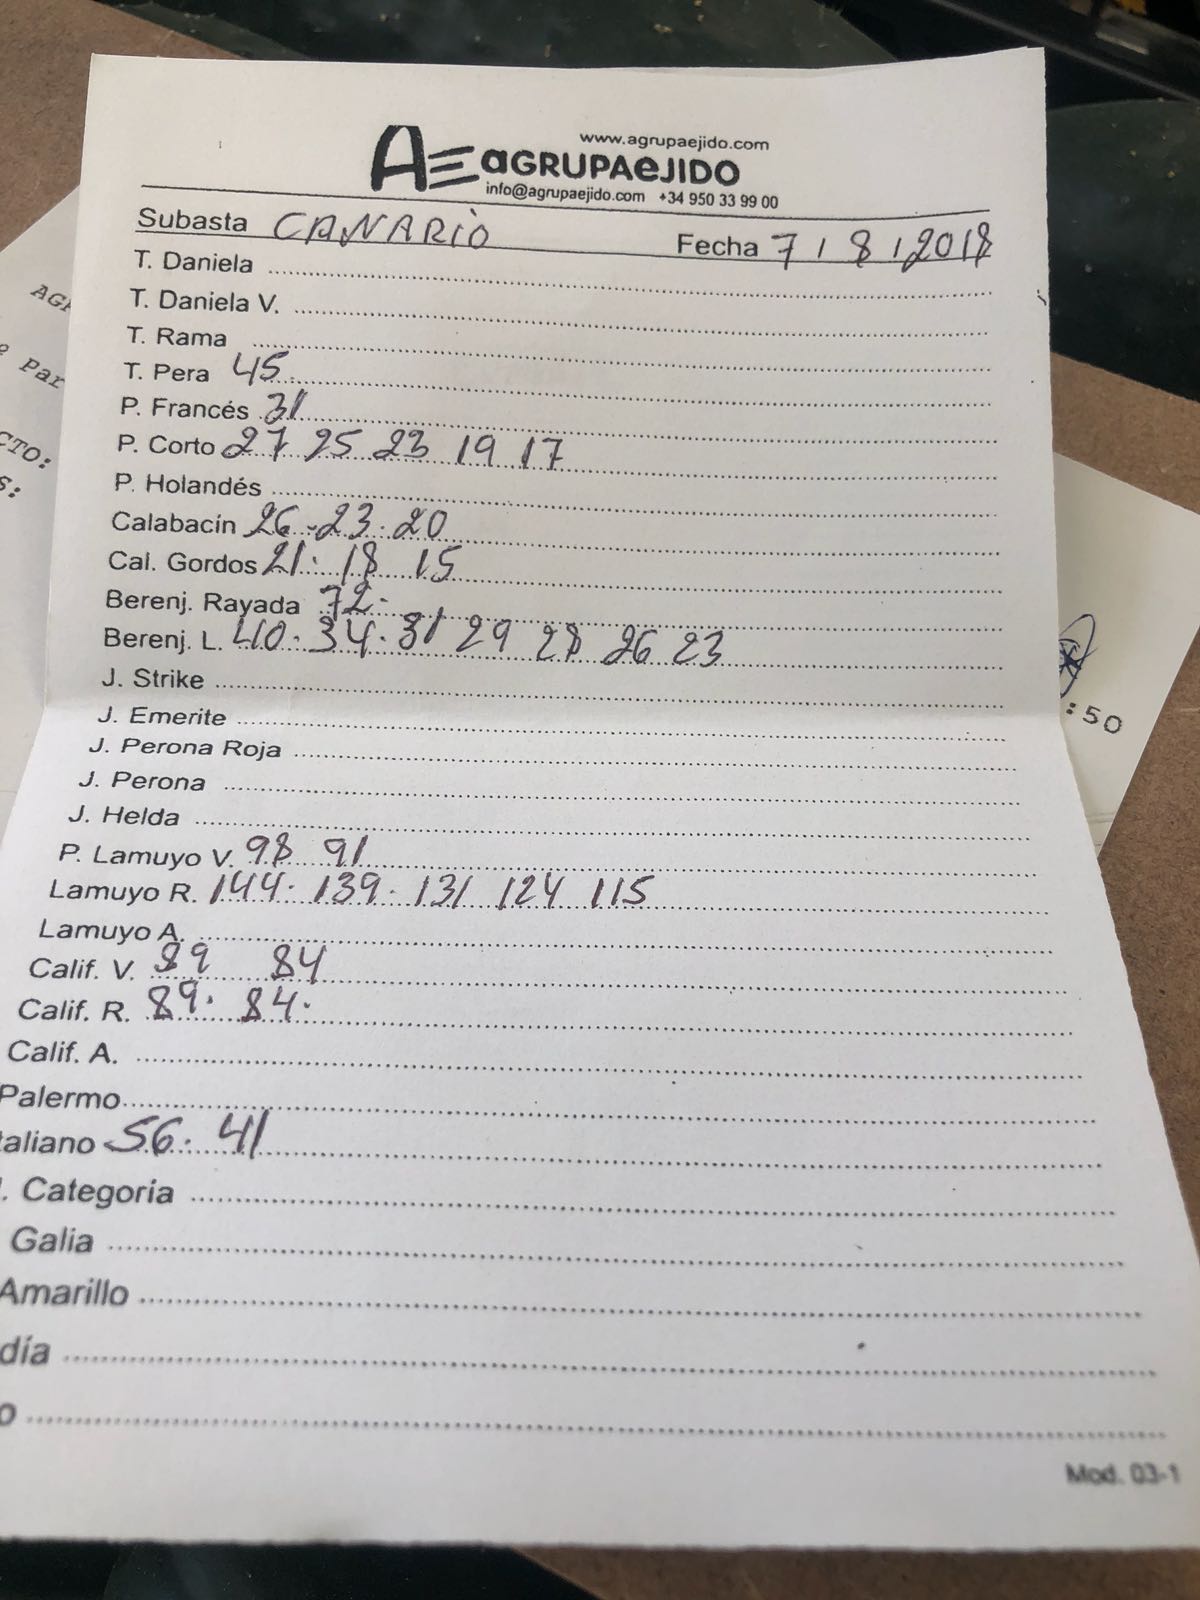 www.agrupaejido.com
AE aGRUPAeJIDO
info@agrupaejido.com +34 950 33 99 00
Subasta CANARIO Fecha 7 / 8 / 2018
T. Daniela
T. Daniela V.
T. Rama
T. Pera 45.
P. Francés 31
P. Corto 27 25 23 19 17
P. Holandés
Calabacín 26 - 23 - 20
Cal. Gordos 21. 18 15
Berenj. Rayada 72.
Berenj. L. 40. 34. 31 29 28 26 23
J. Strike
J. Emerite
J. Perona Roja
J. Perona
J. Helda
P. Lamuyo V. 98 91
Lamuyo R. 144. 139. 131 124 115
Lamuyo A.
Calif. V. 89 84
Calif. R. 89. 84.
Calif. A.
Palermo
taliano 56. 41
. Categoría
Galia
Amarillo
día
o
Mod. 03-1
AGR
Par
CTO:
s:
:50